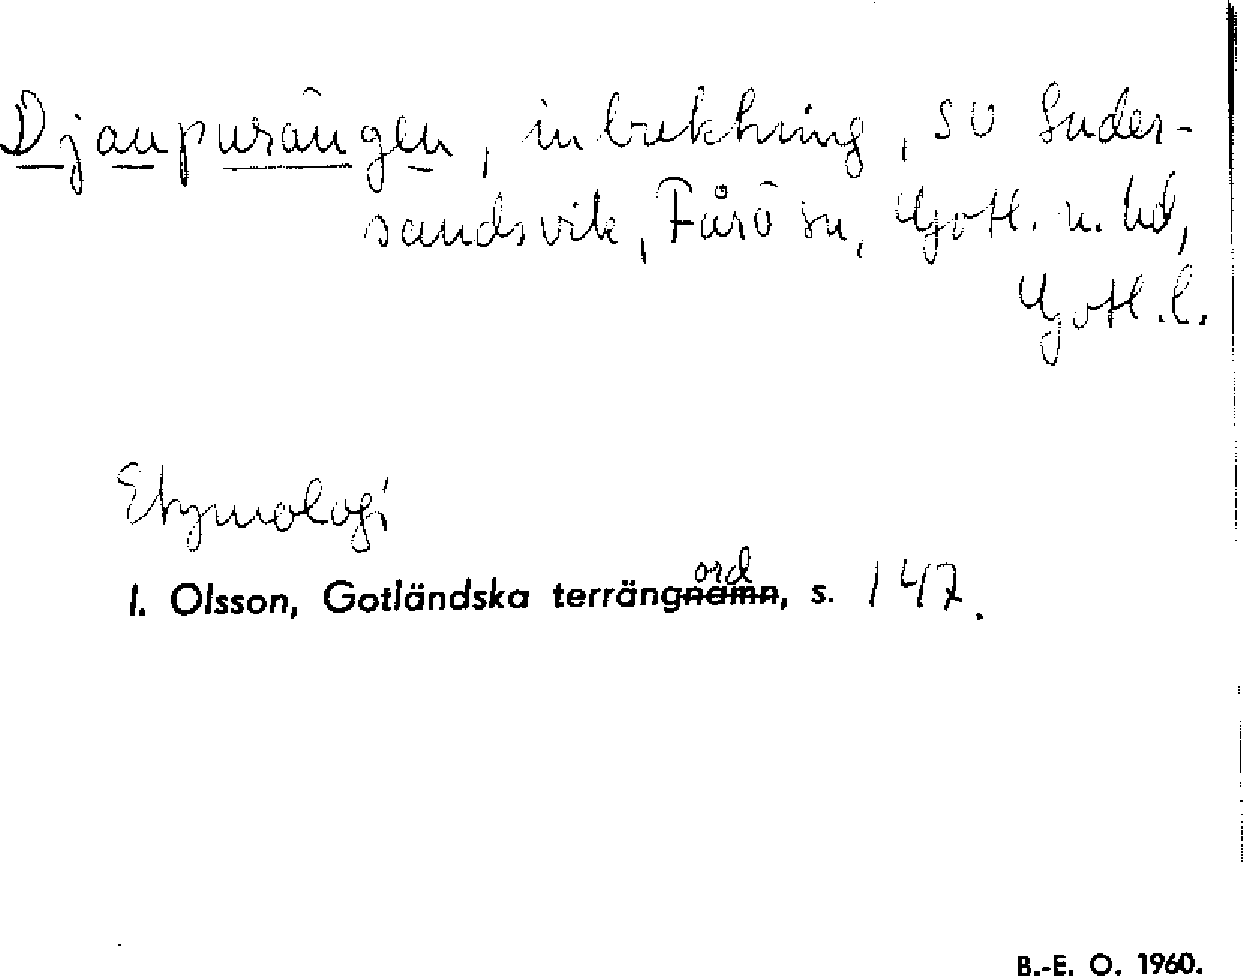 Djaupurängen, inbuktning, SO Suder-
sandsvik, Fårö sn, Gotl. n. hd,
Gotl. l.
Etymologi
I. Olsson, Gotländska terrängnamn, s. 147.
ord
B.-E. O. 1960.